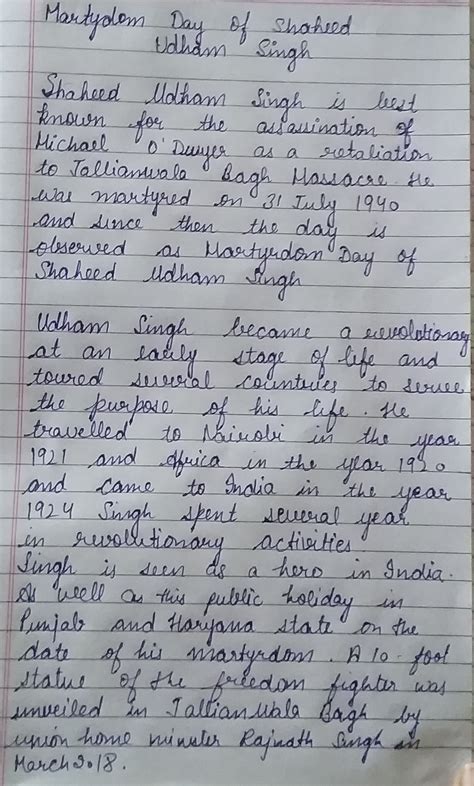 Martydom Day of Shaheed
Udham Singh
Shaheed Udham Singh is best
known for the assassination of
Michael O'Dwyer as a retaliation
to Jallianwala Bagh Massacre. He
was martyred on 31 July 1940
and since then the day is
observed as Martyrdom Day of
Shaheed Udham Singh
Udham Singh became a revolutionary
at an early stage of life and
toured several countries to serve
the purpose of his life. He
travelled to Nairobi in the year
1921 and Africa in the year 1920
and came to India in the year
1924 Singh spent several year
in revolutionary activities.
Singh is seen as a hero in India.
As well as this public holiday in
Punjab and Haryana state on the
date of his martyrdom. A 10-foot
statue of the freedom fighter was
unveiled in Jallianwala Bagh by
union home minister Rajnath Singh in
March 2018.